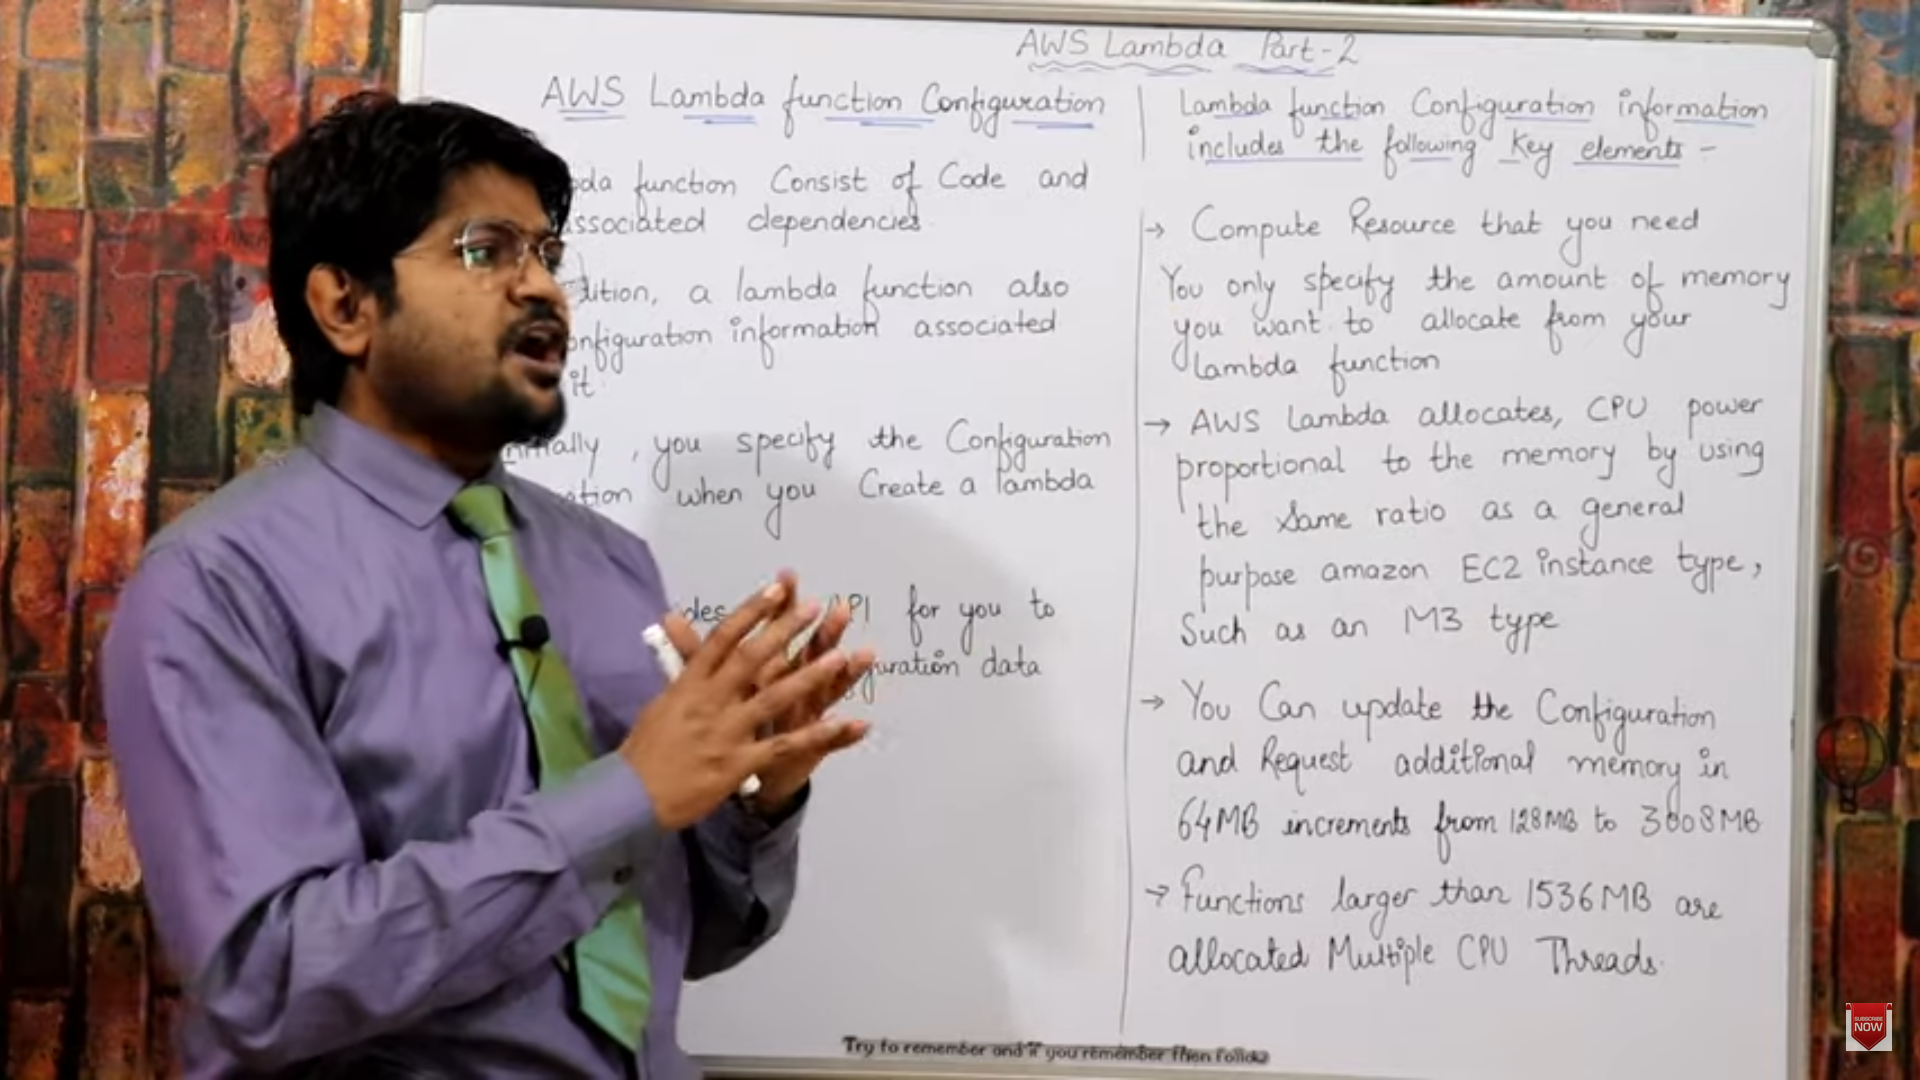 AWS Lambda Part-2
AWS Lambda function Configuration
function Consist of Code and
dependencies.
, a lambda function also
information associated
it.
, you specify the Configuration
when you Create a lambda
API for you to
data
Lambda function Configuration information
includes the following Key elements -
→ Compute Resource that you need
You only specify the amount of memory
you want to allocate from your
lambda function
→ AWS Lambda allocates, CPU power
proportional to the memory by using
the same ratio as a general
purpose amazon EC2 instance type,
Such as an M3 type
→ You Can update the Configuration
and Request additional memory in
64MB increments from 128MB to 3008MB
→ Functions larger than 1536MB are
allocated Multiple CPU Threads.
Try to remember and if you remember then
SUBSCRIBE
NOW